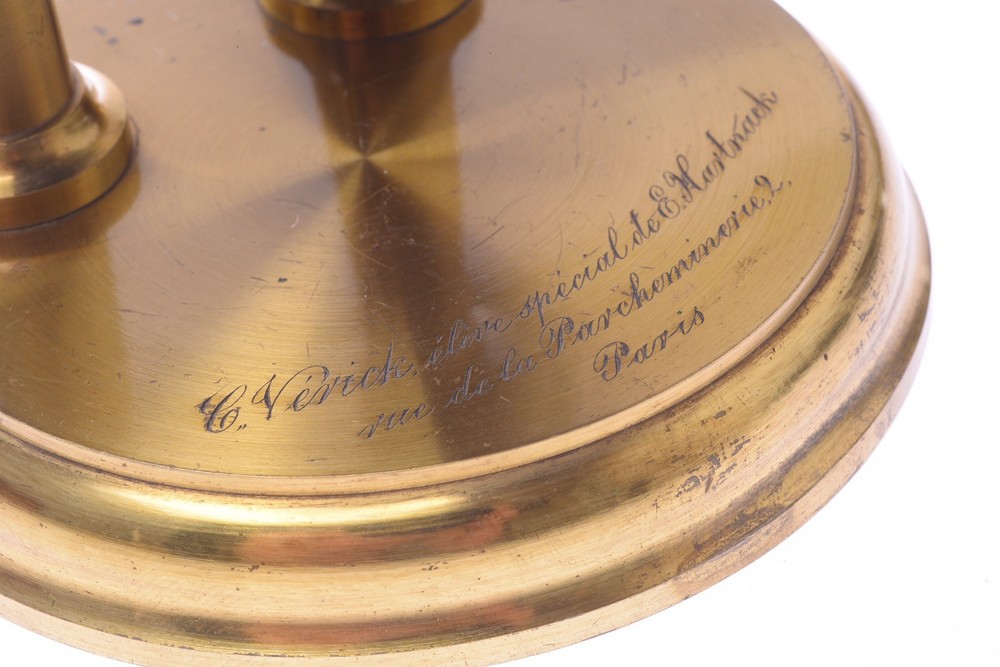 C. Vérick, élève spécial de E. Hartnack
rue de la Parcheminerie, 2.
Paris